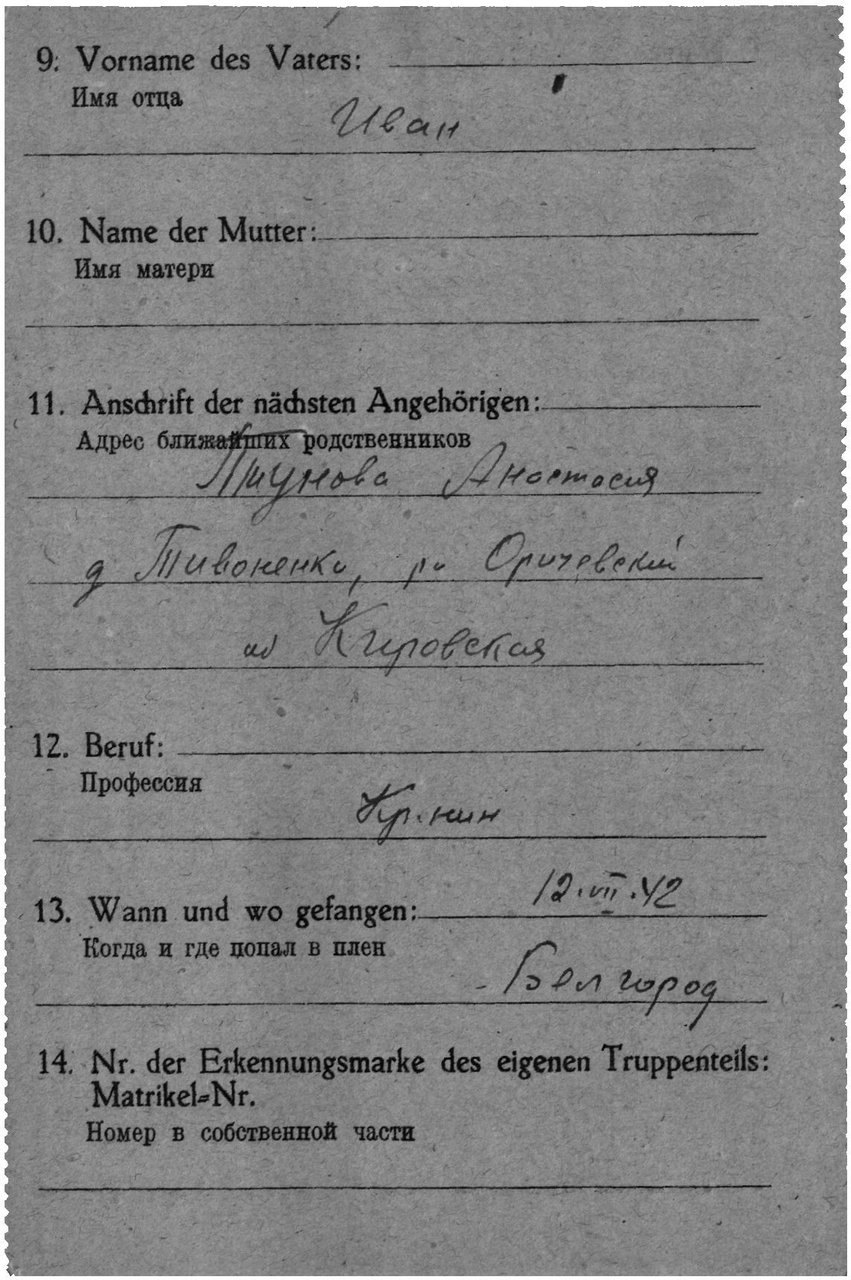 9. Vorname des Vaters:
Имя отца
Иван
10. Name der Mutter:
Имя матери
11. Anschrift der nächsten Angehörigen:
Адрес ближайших родственников
Анастасия
д Тивоненки, Оричевский
Кировская
12. Beruf:
Профессия
13. Wann und wo gefangen: 12.VII.42
Когда и где попал в плен
Белгород
14. Nr. der Erkennungsmarke des eigenen Truppenteils:
Matrikel-Nr.
Номер в собственной части